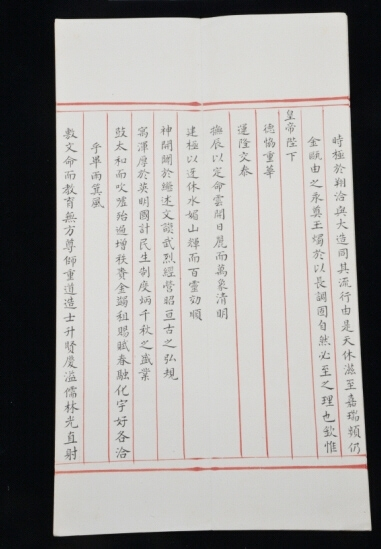 時極於翔洽與大造同其流行由是天休滋至嘉瑞頻仍
金甌由之永奠玉燭於以長調固自然必至之理也欽惟
皇帝陛下
德恊重華
運隆文泰
撫辰以定命雲開日麗而萬象清明
建極以迓休水媚山輝而百靈効順
神開闢於繼述文謨武烈經營昭亘古之弘規
寓渾厚於英明國計民生制度炳千秋之盛業
鼓太和而吹爐殆過增秩賚金蠲租賜賦春融化宇好各洽
乎畢雨箕風
敷文命而教育無方尊師重道造士升賢慶溢儒林光直射